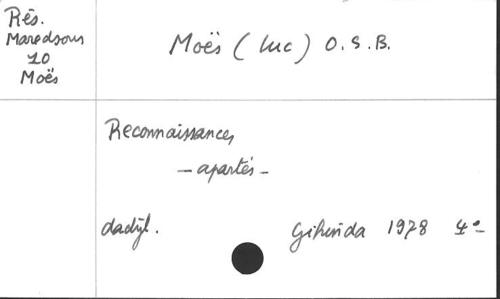 Rés.
Maredsous
10
Moës
Moës (Luc) O.S.B.
Reconnaissances
- apartés -
dactyl. Gihinda 1978 4°